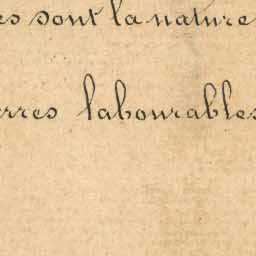 es sont la nature
erres labourables